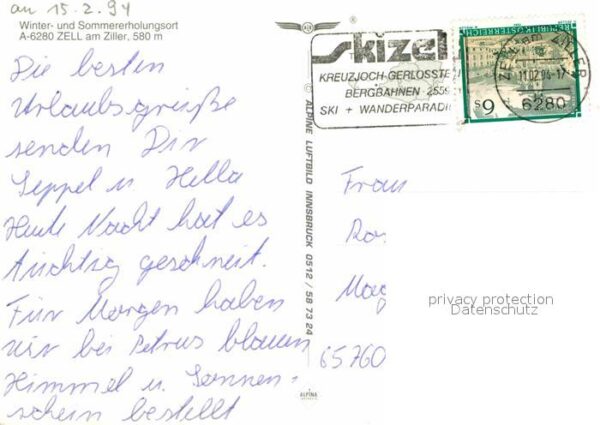 an 15.2.94
Winter- und Sommererholungsort
A-6280 ZELL am Ziller, 580 m
Die besten
Urlaubsgrüße
senden Dir
Seppel u. Hella
Heute Nacht hat es
tüchtig geschneit.
Für Morgen haben
wir bei Petrus blauen
Himmel u. Sonnen-
schein bestellt
© ALPINE LUFTBILD INNSBRUCK 0512 / 58 73 24
ALPINA
skizell
KREUZJOCH-GERLOSSTE
BERGBAHNEN 2559
SKI + WANDERPARADI
REPUBLIK ÖSTERREICH
S 6
ZELL am ZILLER
11.02.94-17
6280
Frau
Ro
Mag
65760
privacy protection
Datenschutz